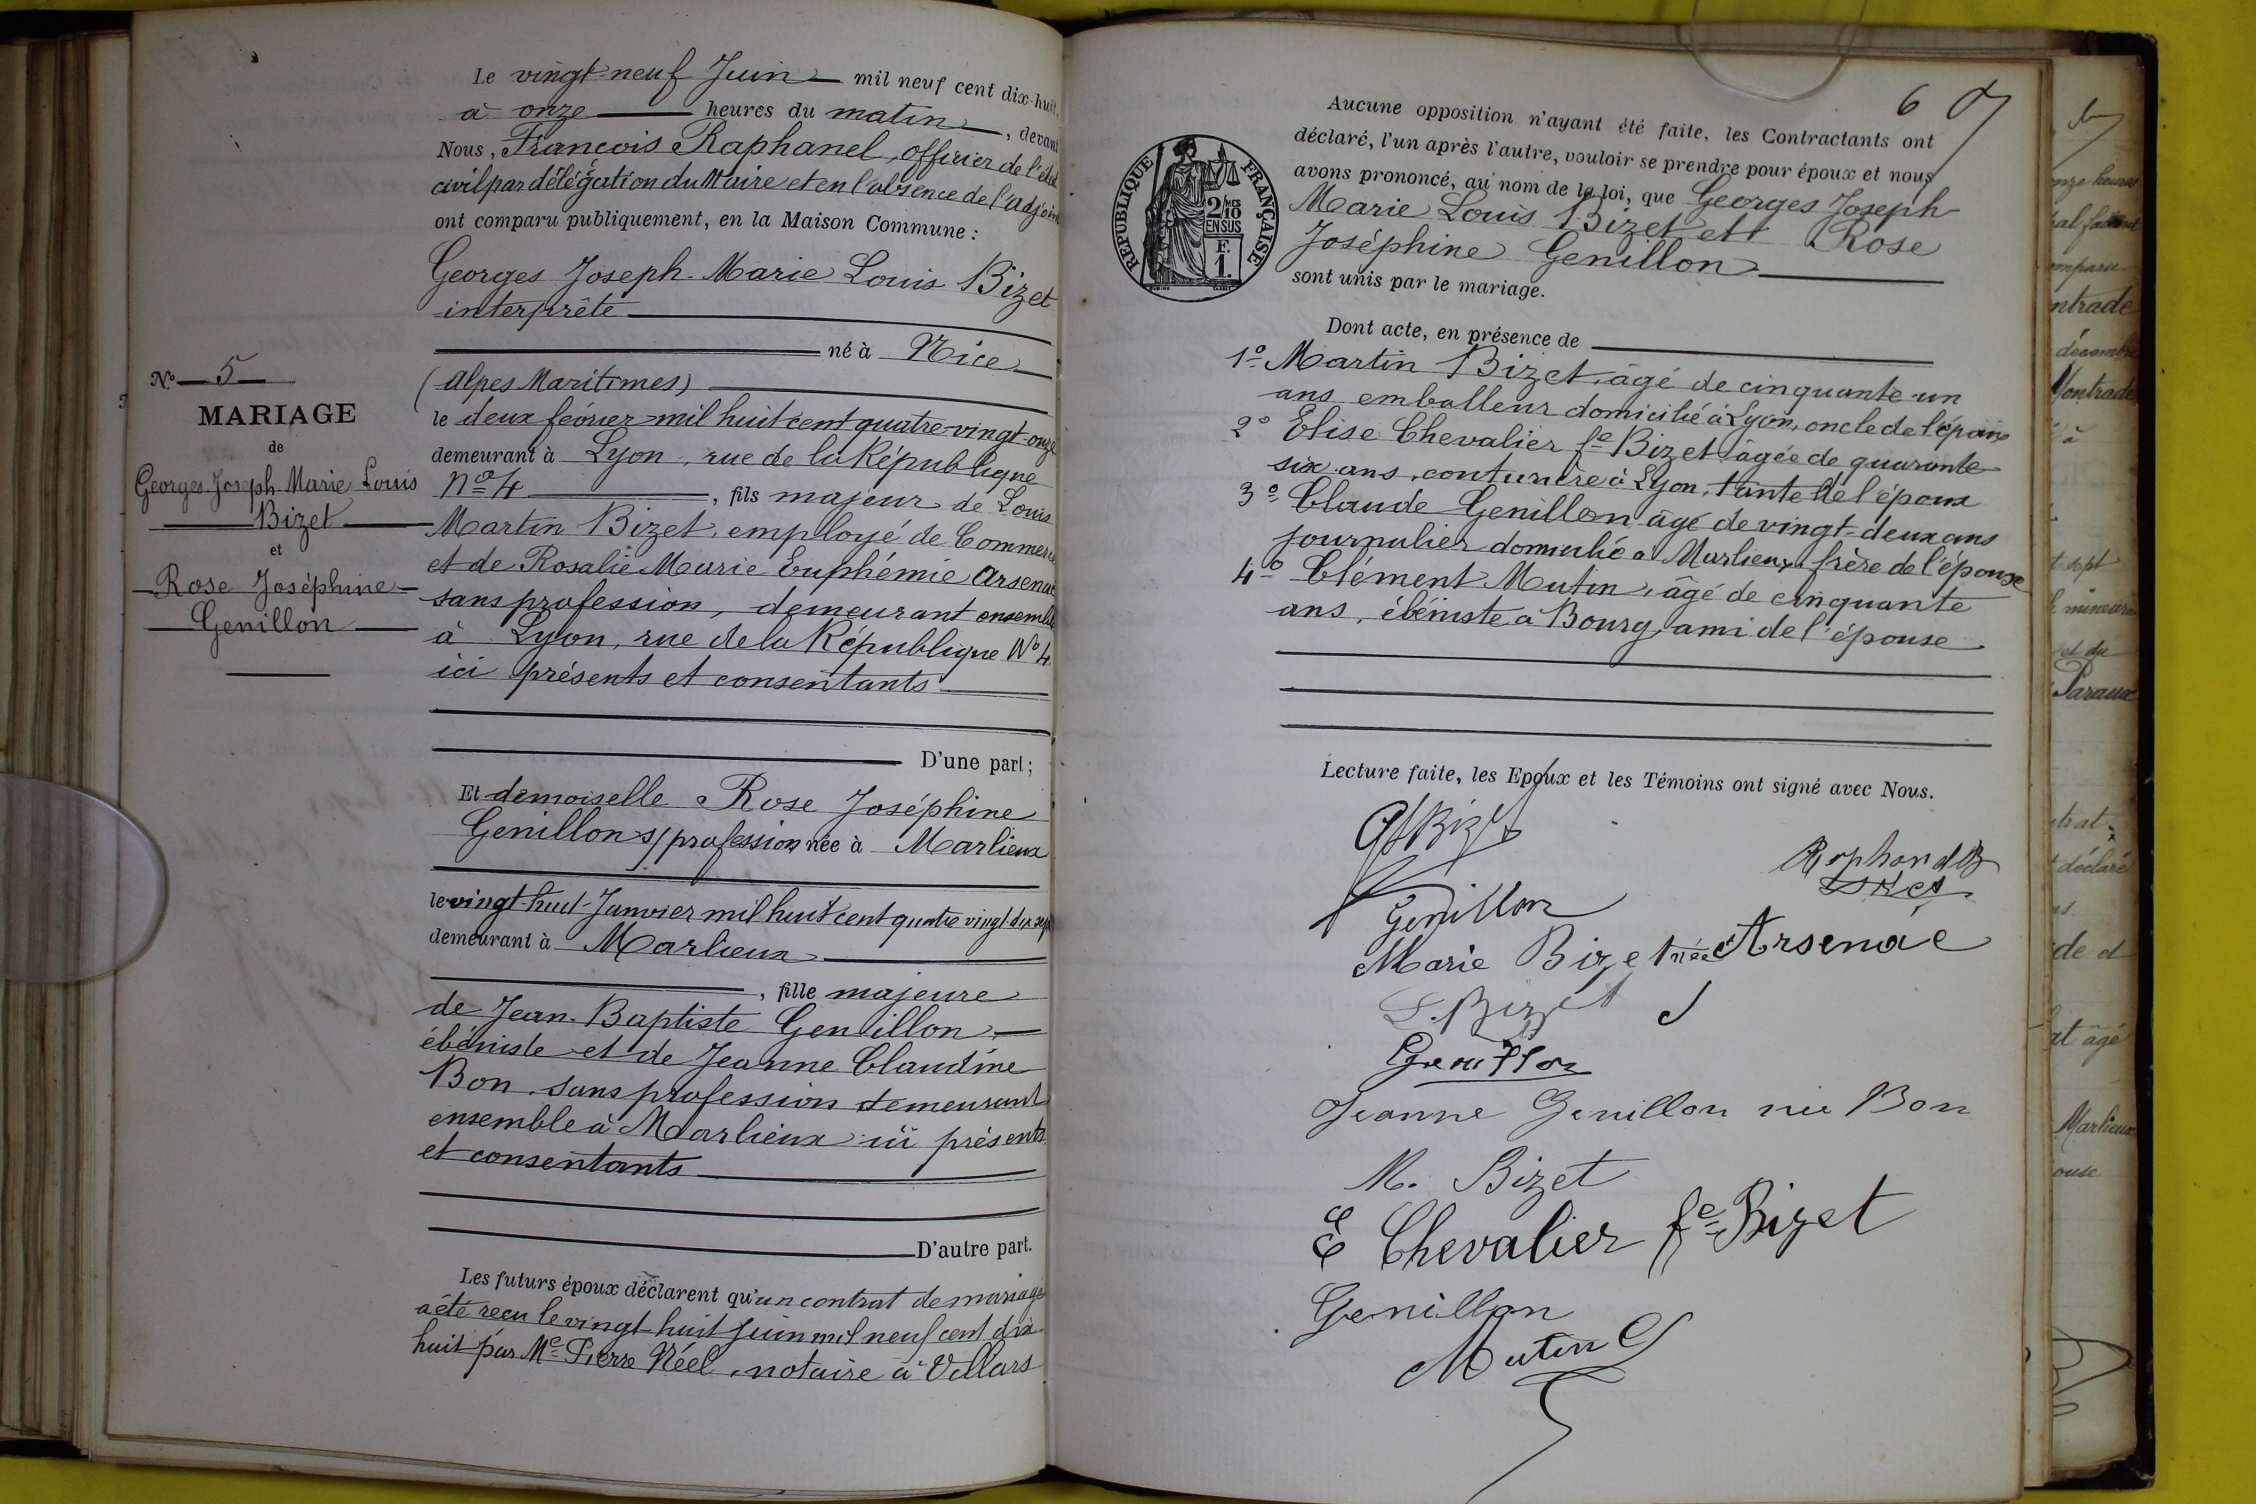 Le vingt-neuf Juin mil neuf cent dix-huit,
à onze heures du matin, devant
Nous, François Raphanel, officier de l'état
civil par délégation du Maire et en l'absence de l'adjoint
ont comparu publiquement, en la Maison Commune :
Georges Joseph Marie Louis Bizet
interprète
né à Nice
(Alpes Maritimes)
le deux février mil huit cent quatre-vingt-onze
demeurant à Lyon, rue de la République
N° 4, fils majeur de Louis
Martin Bizet, employé de Commerce
et de Rosalie Marie Euphémie Arsenac
sans profession, demeurant ensemble
à Lyon, rue de la République N° 4.
ici présents et consentants
D'une part ;
Et demoiselle Rose Joséphine
Genillon s/ profession née à Marlieux
le vingt-huit Janvier mil huit cent quatre vingt-dix sept
demeurant à Marlieux
, fille majeure
de Jean-Baptiste Genillon,
ébéniste et de Jeanne Claudine
Bon, sans profession demeurant
ensemble à Marlieux ici présents
et consentants
D'autre part.
Les futurs époux déclarent qu'un contrat de mariage
a été reçu le vingt-huit juin mil neuf cent dix
huit par Me Pierre Néel, notaire à Villars
N° 5
MARIAGE
de
Georges Joseph Marie Louis
Bizet
et
Rose Joséphine
Genillon
6
Aucune opposition n'ayant été faite, les Contractants ont
déclaré, l'un après l'autre, vouloir se prendre pour époux et nous
avons prononcé, au nom de la loi, que Georges Joseph
Marie Louis Bizet et Rose
Joséphine Genillon
sont unis par le mariage.
RÉPUBLIQUE FRANÇAISE
2/10 MES
EN SUS
F.
1.
Dont acte, en présence de
1° Martin Bizet, âgé de cinquante-un
ans emballeur domicilié à Lyon, oncle de l'époux
2° Elise Chevalier fe Bizet âgée de quarante
six ans, couturière à Lyon, tante de l'époux
3° Claude Genillon âgé de vingt-deux ans
journalier domicilié à Marlieux, frère de l'épouse
4° Clément Mutin, âgé de cinquante
ans, ébéniste à Bourg, ami de l'épouse
Lecture faite, les Epoux et les Témoins ont signé avec Nous.
Genillon
Marie Bizet née Arsenac
L. Bizet
Genillon
Jeanne Genillon née Bon
M. Bizet
E Chevalier fe Bizet
Genillon
Mutin C